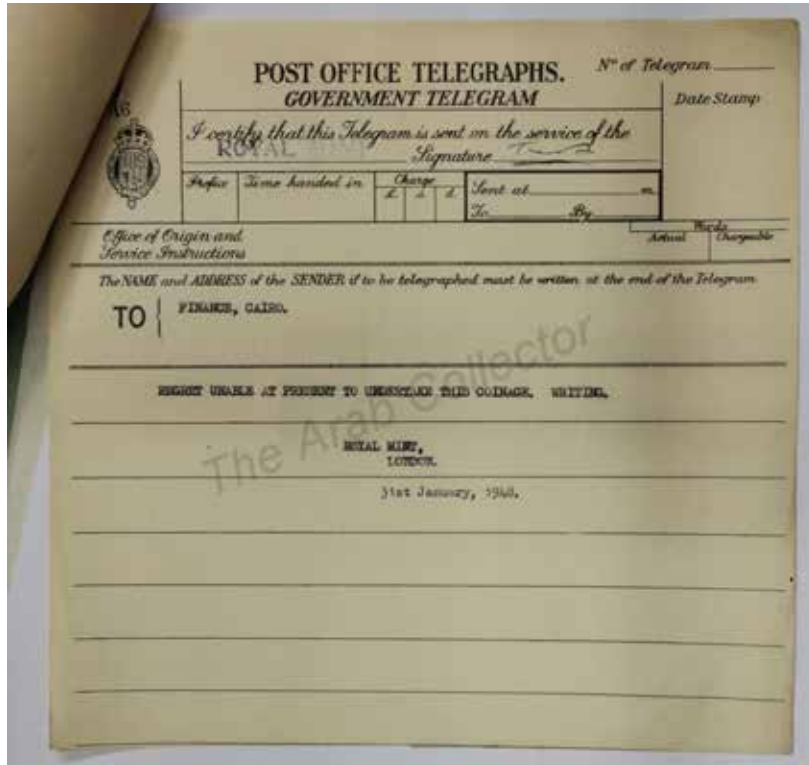 POST OFFICE TELEGRAPHS.
Nº of Telegram
GOVERNMENT TELEGRAM
Date Stamp
I certify that this Telegram is sent on the service of the
ROYAL
Signature
Prefix
Time handed in
Charge
£ s d
Sent at m.
To By
Office of Origin and
Service Instructions
Words
Actual Chargeable
The NAME and ADDRESS of the SENDER if to be telegraphed must be written at the end of the Telegram
TO
FINANCE, CAIRO.
REGRET UNABLE AT PRESENT TO UNDERTAKE THIS COINAGE. WRITING.
ROYAL MINT,
LONDON.
31st January,
The Arab Collector